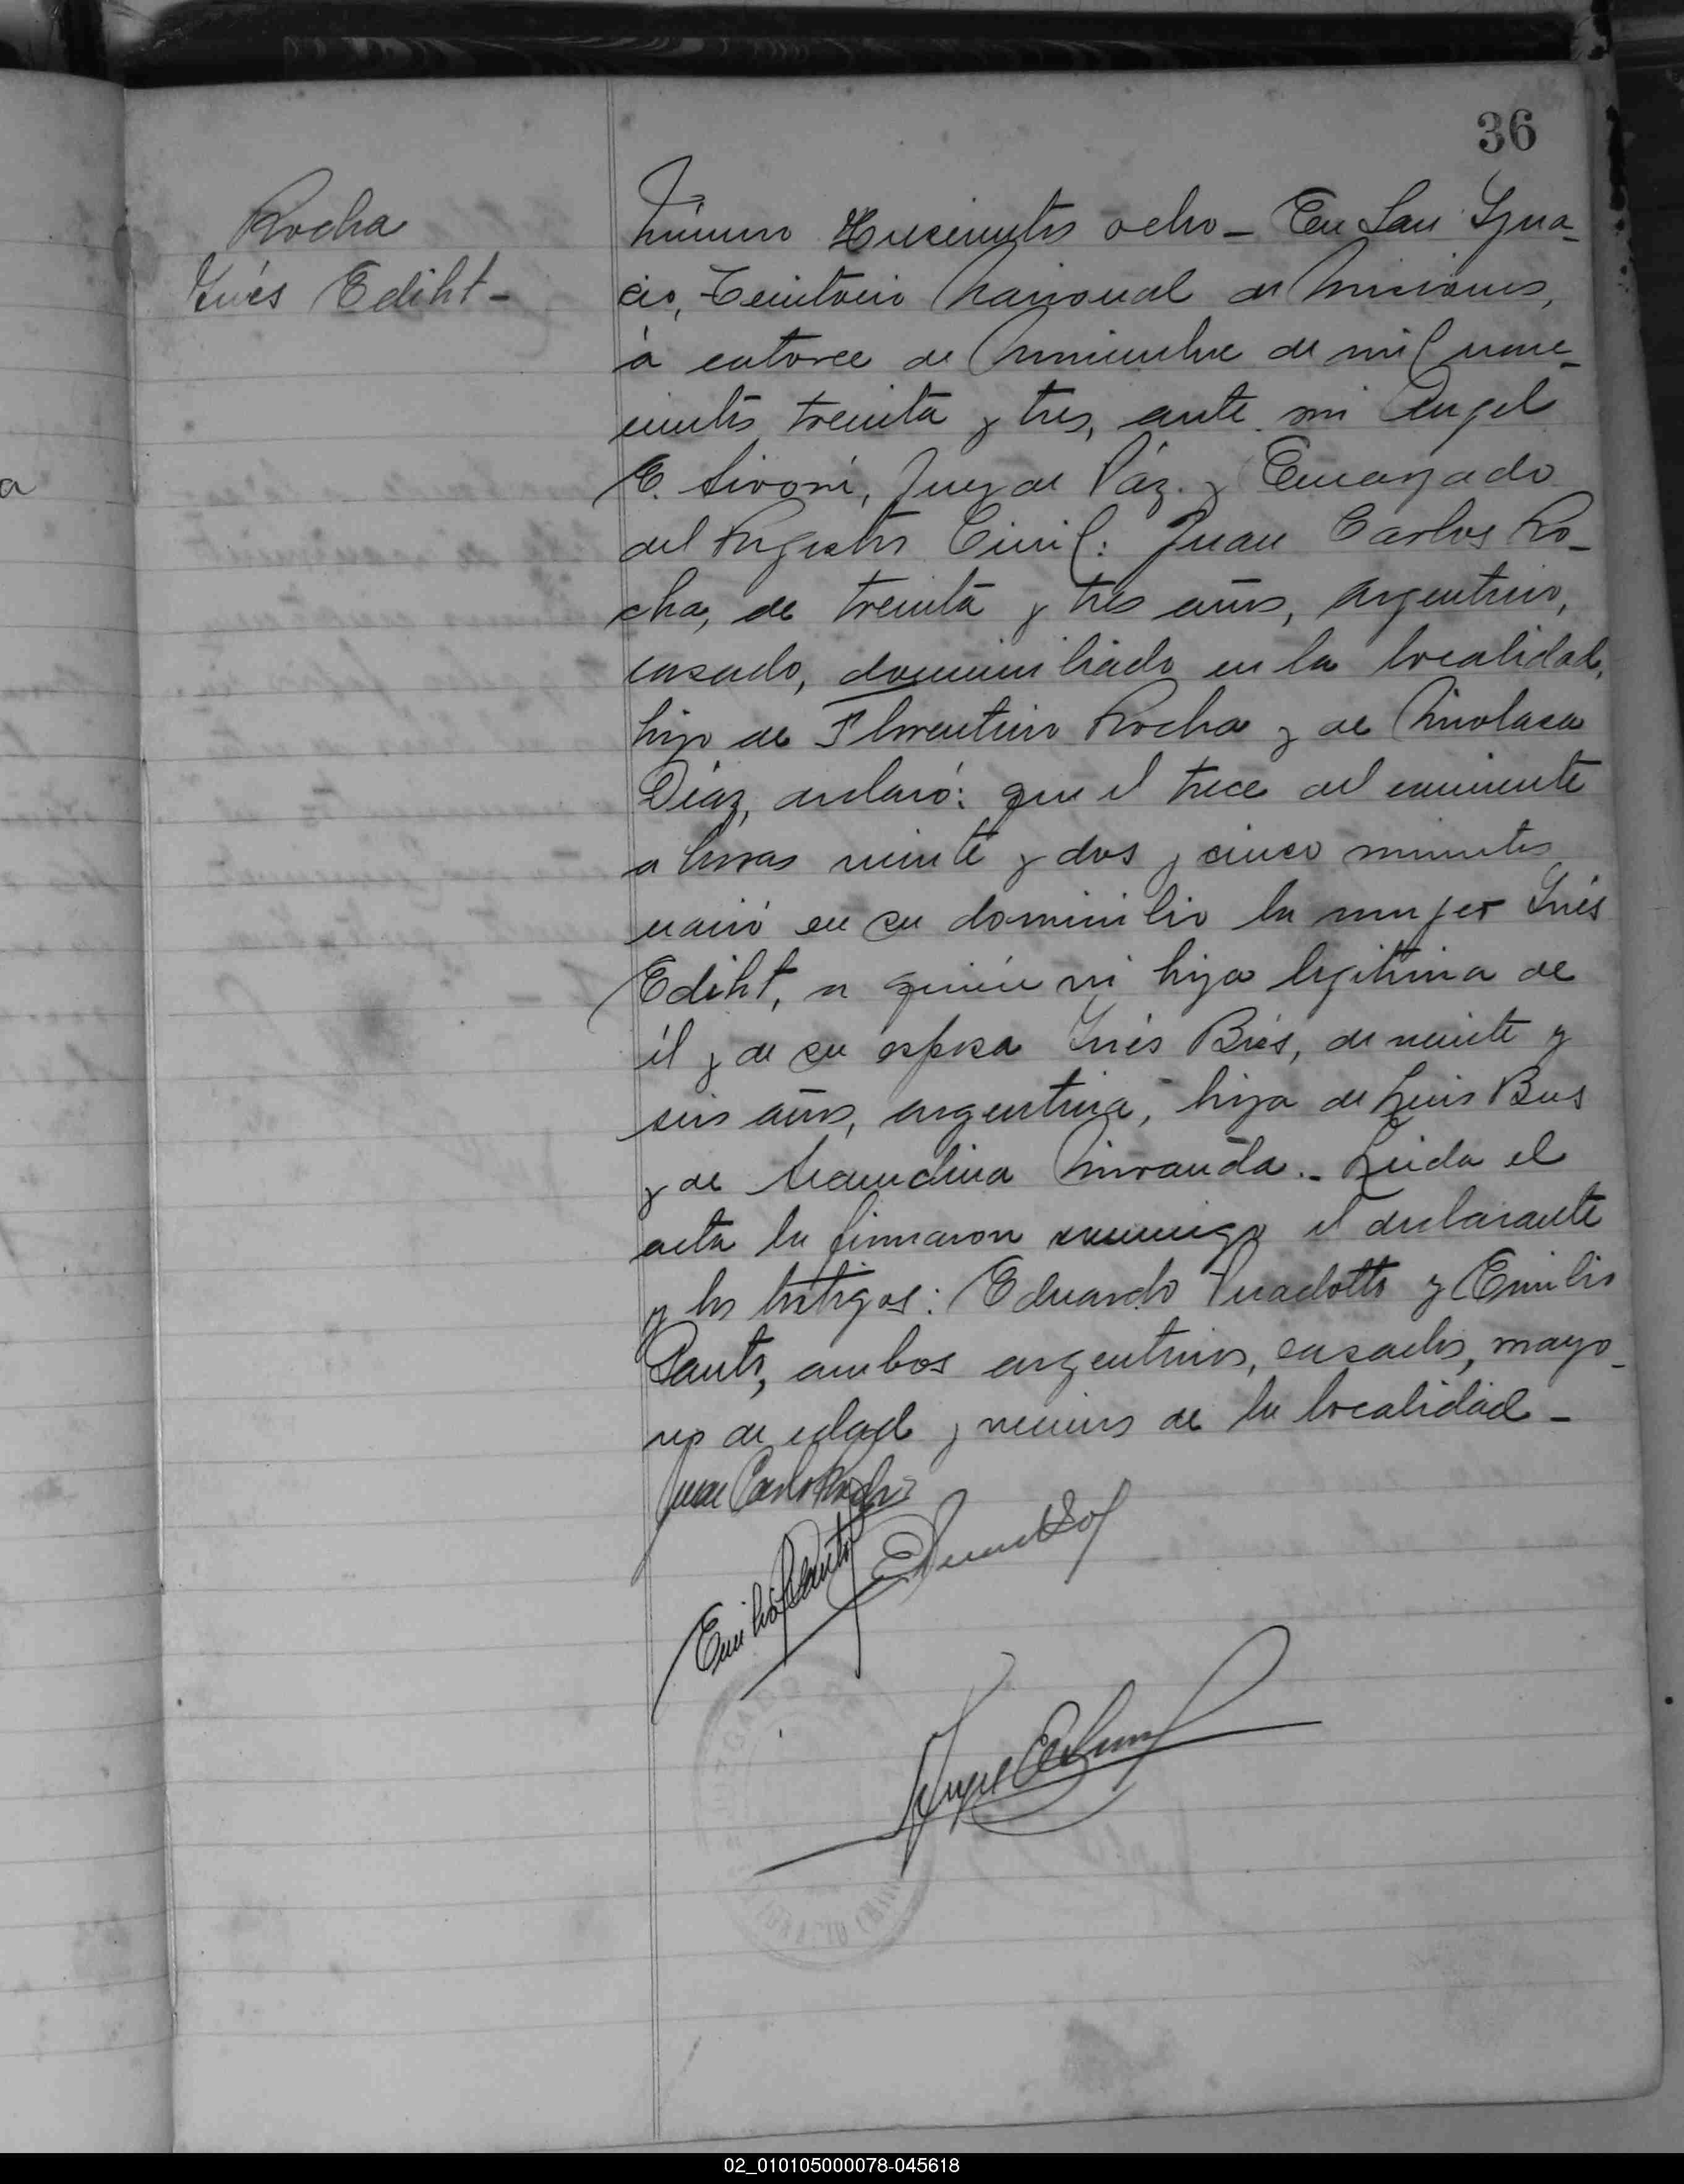 36
Rocha
Inés Ediht -
Número trescientos ocho - En San Igna-
cio, Territorio Nacional de Misiones,
á catorce de Noviembre de mil nove-
cientos treinta y tres, ante mi Angel
E. Juez de Páz y Encargado
del Registro Civil: Juan Carlos Ro-
cha, de treinta y tres años, argentino,
casado, domiciliado en la localidad,
hijo de Florentino Rocha y de Nicolasa
Díaz, declaró: que el trece del corriente
a horas veinte y dos y cinco minutos
nació en su domicilio la mujer Inés
Ediht, a quién vi hija legitima de
él y de su esposa Inés de veinte y
seis años, argentina, hija de Luis
y de Miranda.- Leida el
acta la firmaron conmigo el declarante
y los testigos: Eduardo y Emilio
ambos argentinos, casados, mayo-
res de edad y vecinos de la localidad -
Juan Carlos Rocha
Emilio
Angel
02_010105000078-045618